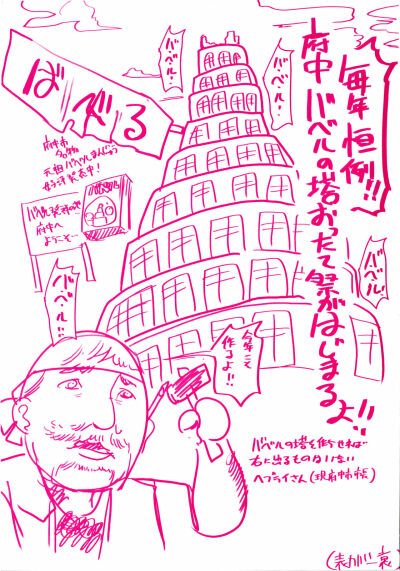 毎年恒例!!
府中バベルの塔おったて祭がはじまるよ!!
ばべる
バ・ベ・ル・
バ・ベ・ル・
バ・ベ・ル・
バ・ベ・ル・!!
府中市
名物
元祖バベルまんじゅう
好評発売中!
バベル発祥の地
府中へ
ようこそ…
今年こそ
作るよ!!
バベルの塔を作らせれば
右に出るものはいない
ヘブライさん(現府中市長)